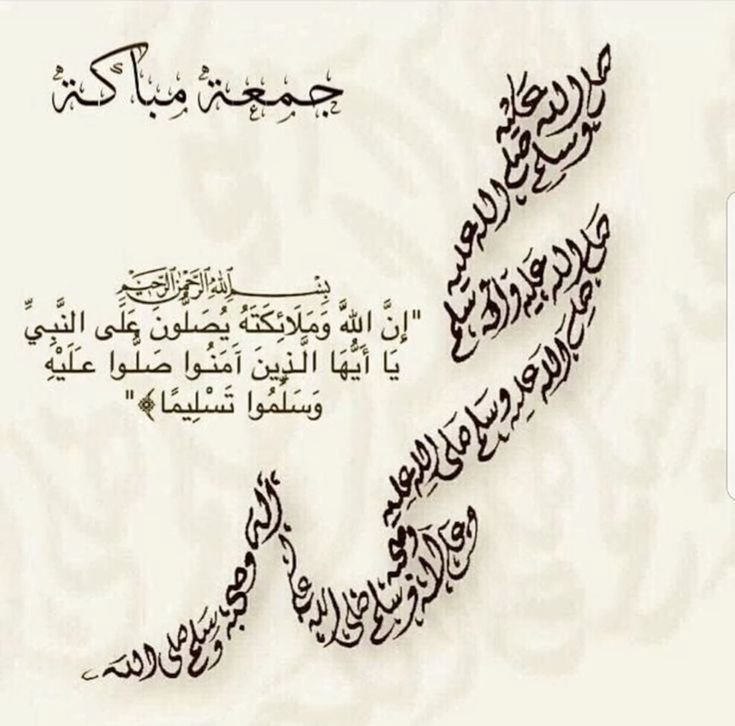 جمعة مباكة
صلى الله عليه وسلم
صلى الله عليه
صلى الله عليه وآله وسلم
صلى الله عليه وسلم صلى الله عليه
بسم الله الرحمن الرحيم
"إِنَّ اللَّهَ وَمَلَائِكَتَهُ يُصَلُّونَ عَلَى النَّبِيِّ
يَا أَيُّهَا الَّذِينَ آمَنُوا صَلُّوا عَلَيْهِ
وَسَلِّمُوا تَسْلِيمًا﴾"
وصحبه
وعلى آله وسلم صلى الله عليه
آله وصحبه وسلم صلى الله